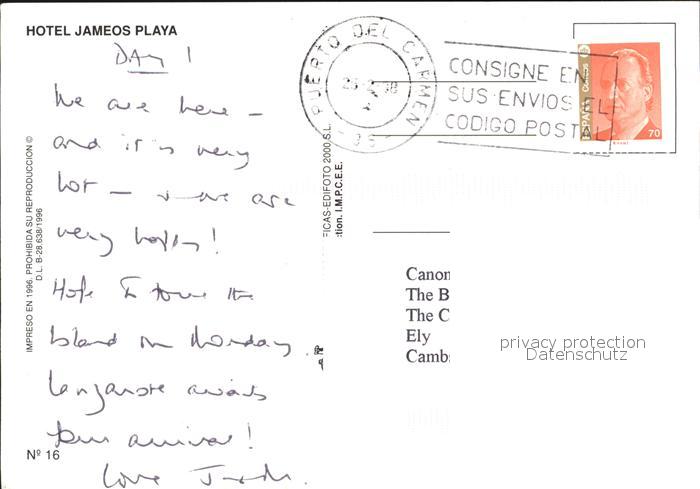 HOTEL JAMEOS PLAYA
DAY 1
We are here –
and it is very
hot – & we are
very happy!
Hope to tour the
Island on Monday.
Lanzarote awaits
your arrival!
Love
Nº 16
IMPRESO EN 1996. PROHIBIDA SU REPRODUCCION ©
D.L. B-28.638/1996
FICAS-EDIFOTO 2000 S.L.
tion. I.M.P.C.E.E.
PUERTO DEL CARMEN
CONSIGNE EN
SUS ENVIOS EL
CODIGO POSTAL
ESPAÑA Correos
70
Canon
The B
The C
Ely
Cambs
privacy protection
Datenschutz